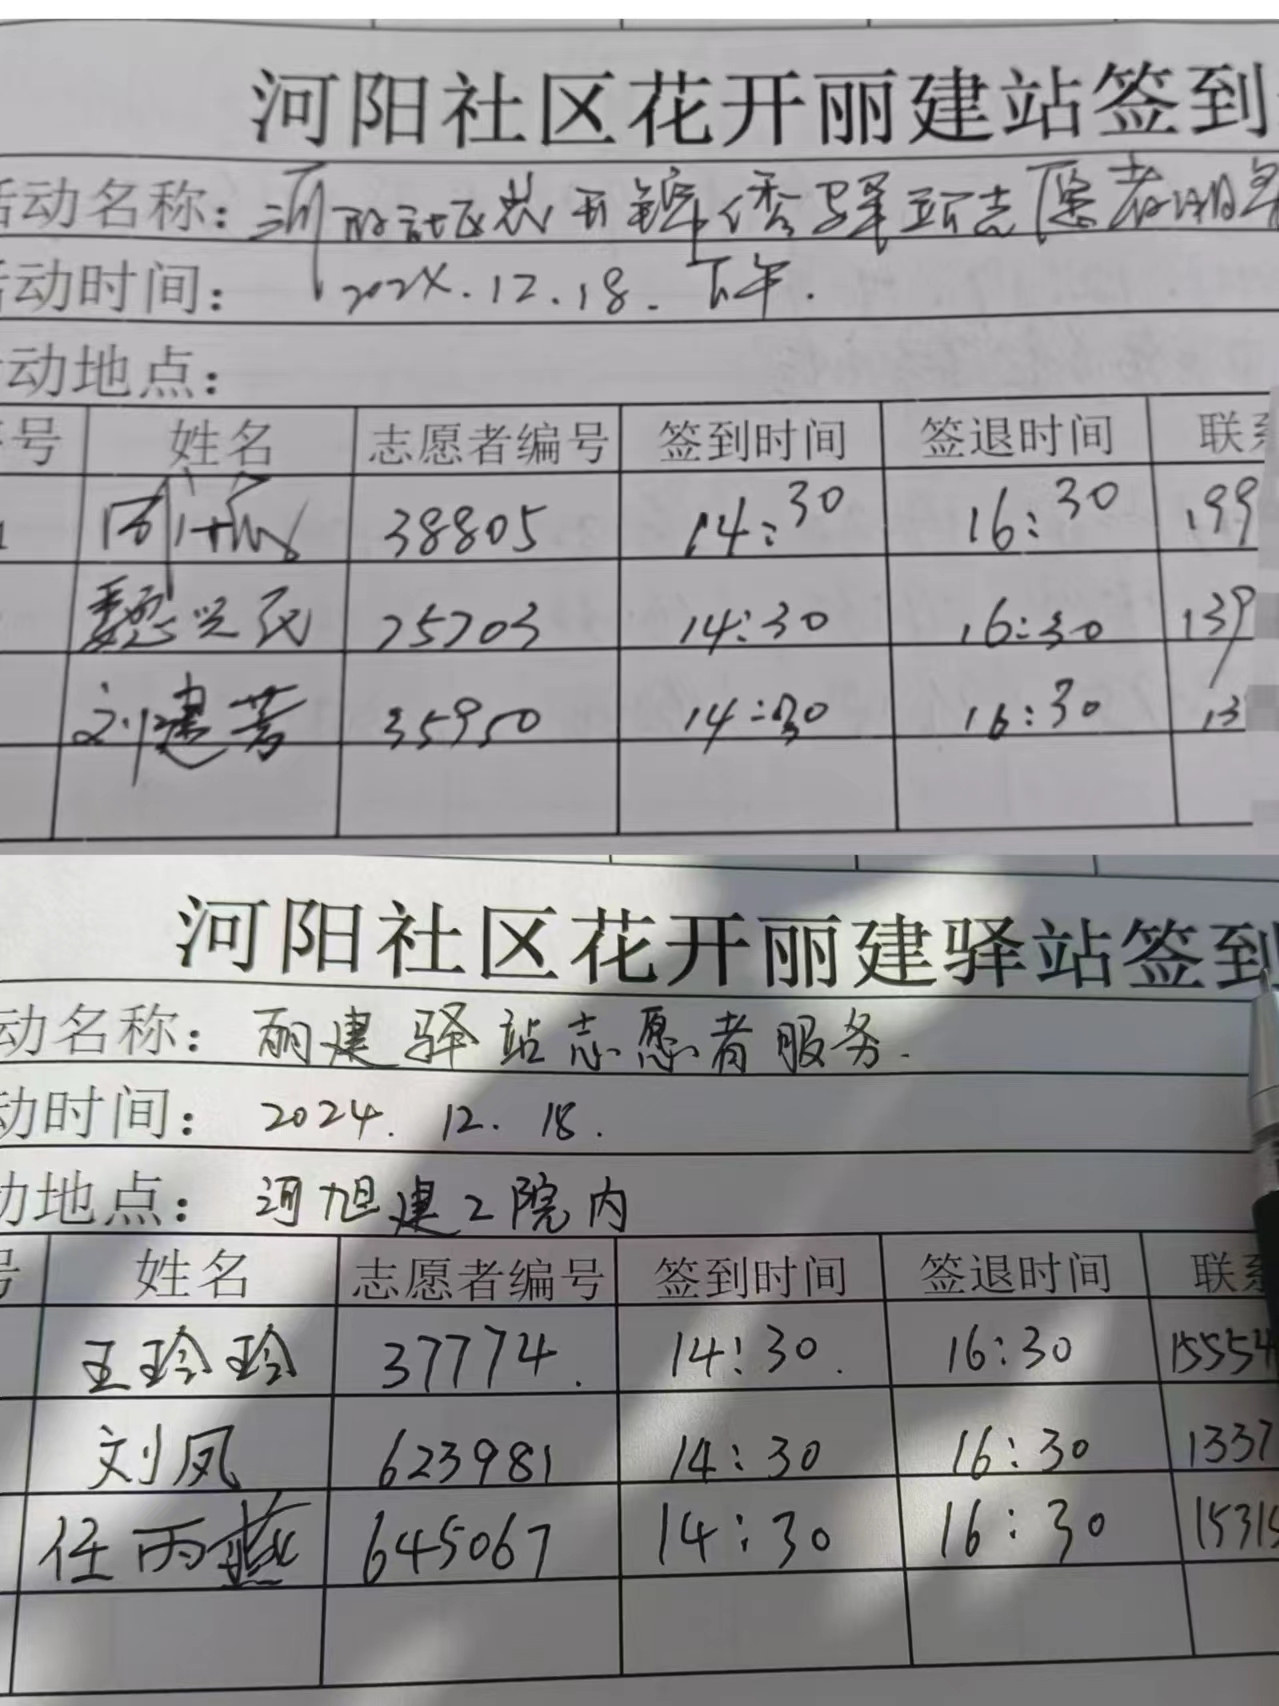 河阳社区花开丽建站签到
活动名称：河阳社区花开锦绣驿站志愿者服务
活动时间：2024.12.18.下午.
动地点：
号 姓名 志愿者编号 签到时间 签退时间 联系
38805 14:30 16:30 199
魏兴民 25703 14:30 16:30 139
刘建芳 35950 14:30 16:30 13
河阳社区花开丽建驿站签到
动名称：丽建驿站志愿者服务.
动时间：2024.12.18.
动地点：河旭建工院内
号 姓名 志愿者编号 签到时间 签退时间 联系
王玲玲 37774. 14:30. 16:30 15554
刘凤 623981 14:30 16:30 1337
任丙燕 645067 14:30 16:30 15315